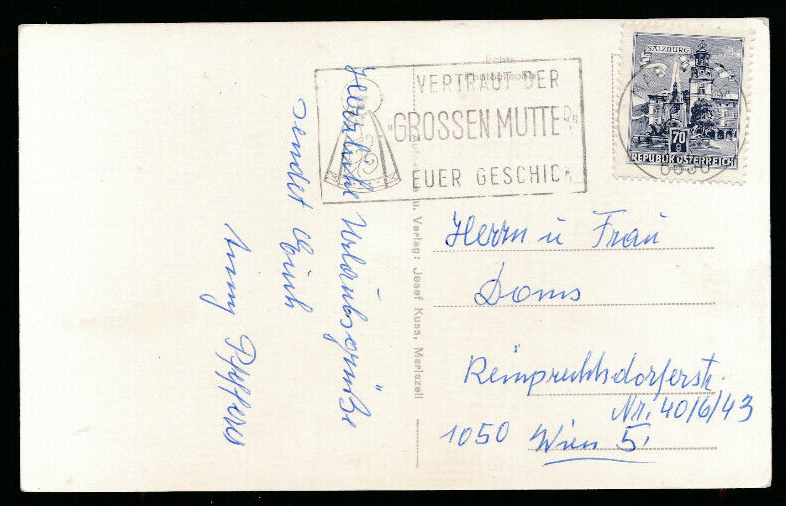 Herzliche Urlaubsgrüße
sendet Euch
Echte
Photographie
u. Verlag: Josef Kuss, Mariazell
VERTRAUT DER
"GROSSEN MUTTER"
EUER GESCHICK
SALZBURG
70
g
REPUBLIK ÖSTERREICH
Herrn u Frau
Doms
Reinprechtsdorferstr.
Nr. 40/6/43
1050 Wien 5.